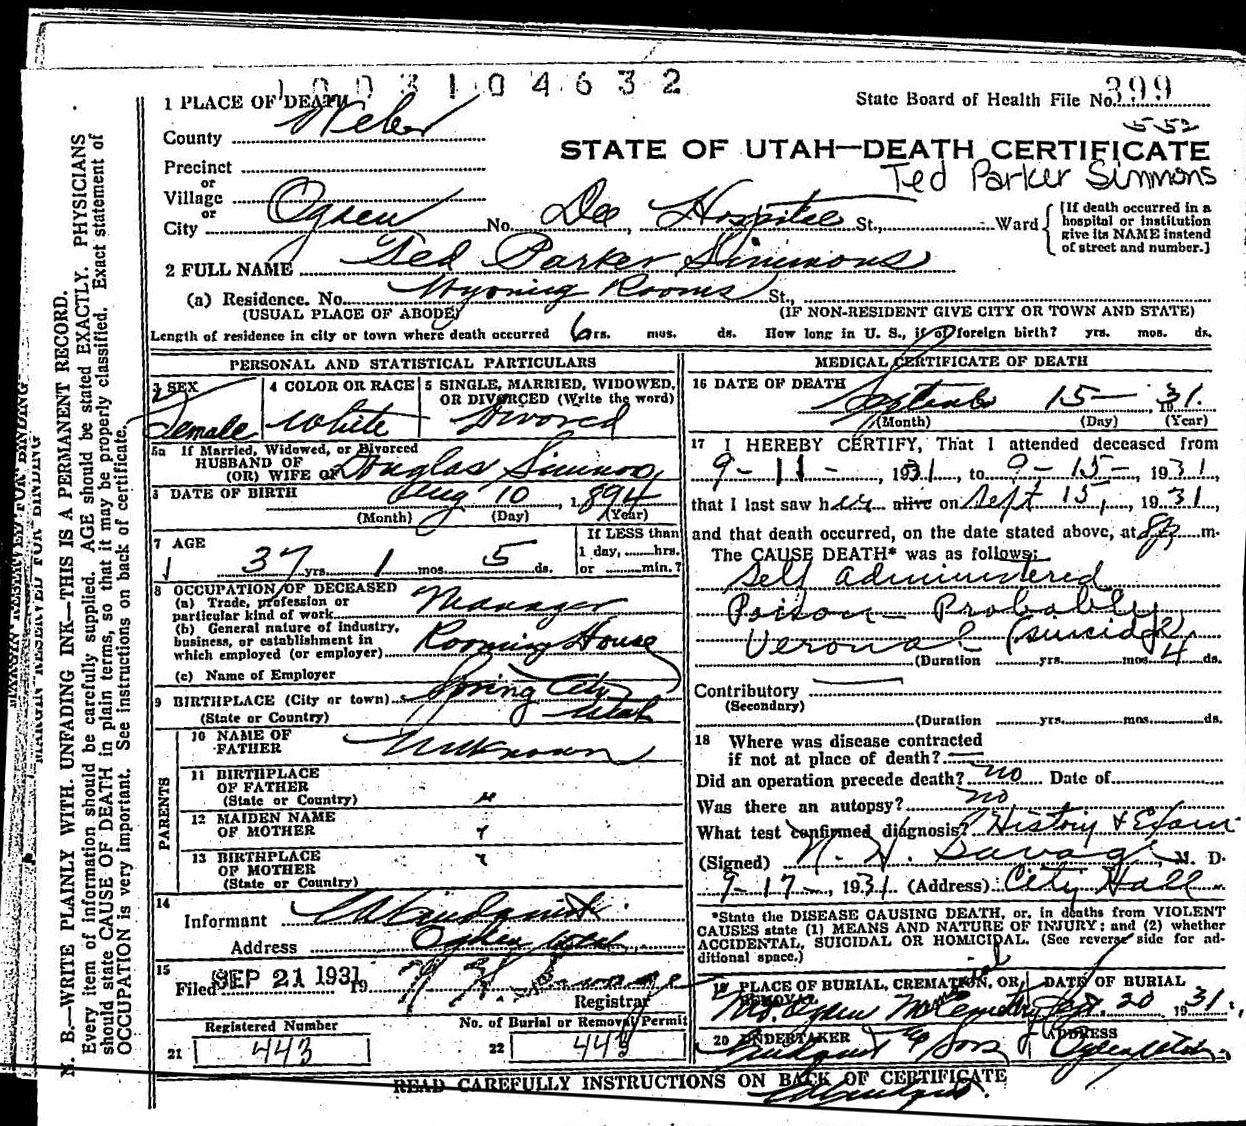 1003104632
1 PLACE OF DEATH
State Board of Health File No. 399
County Weber
552
STATE OF UTAH—DEATH CERTIFICATE
Precinct
Ted Parker Simmons
or
Village
or
City Ogden No. Dee Hospital St., Ward
[If death occurred in a
hospital or institution
give its NAME instead
of street and number.]
2 FULL NAME Ted Parker Simmons
(a) Residence. No. Wyoming Rooms St.,
(USUAL PLACE OF ABODE) (IF NON-RESIDENT GIVE CITY OR TOWN AND STATE)
Length of residence in city or town where death occurred 6 yrs. mos. ds. How long in U. S., if of foreign birth? yrs. mos. ds.
PERSONAL AND STATISTICAL PARTICULARS
3 SEX Female
4 COLOR OR RACE White
5 SINGLE, MARRIED, WIDOWED,
OR DIVORCED (Write the word)
Divorced
5a If Married, Widowed, or Divorced
HUSBAND OF
(OR) WIFE OF Douglas Simmons
6 DATE OF BIRTH Aug 10, 1894
(Month) (Day) (Year)
7 AGE
37 yrs. 1 mos. 5 ds.
If LESS than
1 day, hrs.
or min.?
8 OCCUPATION OF DECEASED
(a) Trade, profession or
particular kind of work Manager
(b) General nature of industry,
business, or establishment in
which employed (or employer) Rooming House
(c) Name of Employer
9 BIRTHPLACE (City or town) Spring City
(State or Country) Utah
PARENTS
10 NAME OF
FATHER Unknown
11 BIRTHPLACE
OF FATHER
(State or Country) "
12 MAIDEN NAME
OF MOTHER "
13 BIRTHPLACE
OF MOTHER "
(State or Country)
14
Informant
Address Ogden Utah
15
Filed SEP 21 1931 19
Registrar
Registered Number
21 443
No. of Burial or Removal Permit
22 443
MEDICAL CERTIFICATE OF DEATH
16 DATE OF DEATH
September 15 1931.
(Month) (Day) (Year)
17 I HEREBY CERTIFY, That I attended deceased from
9-11-, 1931, to 9-15-, 1931,
that I last saw her alive on Sept 15, 1931,
and that death occurred, on the date stated above, at 8 P. m.
The CAUSE DEATH* was as follows:
Self administered
Poison – Probably
Veronal (suicide)
(Duration yrs. mos. 4 ds.
Contributory
(Secondary)
(Duration yrs. mos. ds.
18 Where was disease contracted
if not at place of death?
Did an operation precede death? no Date of
Was there an autopsy? no
What test confirmed diagnosis? History & Exam
(Signed) N. H. Savage, M. D.
9-17-, 1931 (Address) City Hall
*State the DISEASE CAUSING DEATH, or, in deaths from VIOLENT
CAUSES state (1) MEANS AND NATURE OF INJURY; and (2) whether
ACCIDENTAL, SUICIDAL OR HOMICIDAL. (See reverse side for ad-
ditional space.)
19 PLACE OF BURIAL, CREMATION, OR REMOVAL DATE OF BURIAL
Ogden Cemetery Sept. 20 1931.
20 UNDERTAKER ADDRESS
Lindquist & Sons Ogden Utah.
READ CAREFULLY INSTRUCTIONS ON BACK OF CERTIFICATE
MARGIN RESERVED FOR BINDING
N. B.—WRITE PLAINLY WITH UNFADING INK—THIS IS A PERMANENT RECORD.
Every item of information should be carefully supplied. AGE should be stated EXACTLY. PHYSICIANS
should state CAUSE OF DEATH in plain terms, so that it may be properly classified. Exact statement of
OCCUPATION is very important. See instructions on back of certificate.